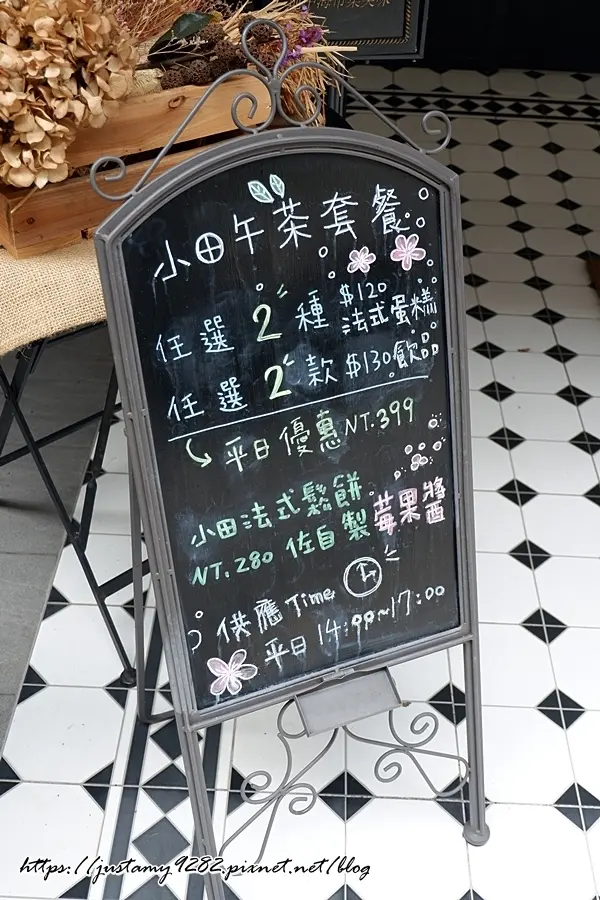 小田午茶套餐
任選2種 $120 法式蛋糕
任選2款 $130飲品
平日優惠NT.399
小田法式鬆餅
NT.280 佐自製莓果醬
供應Time
平日 14:00~17:00
https://justamy9282.pixnet.net/blog